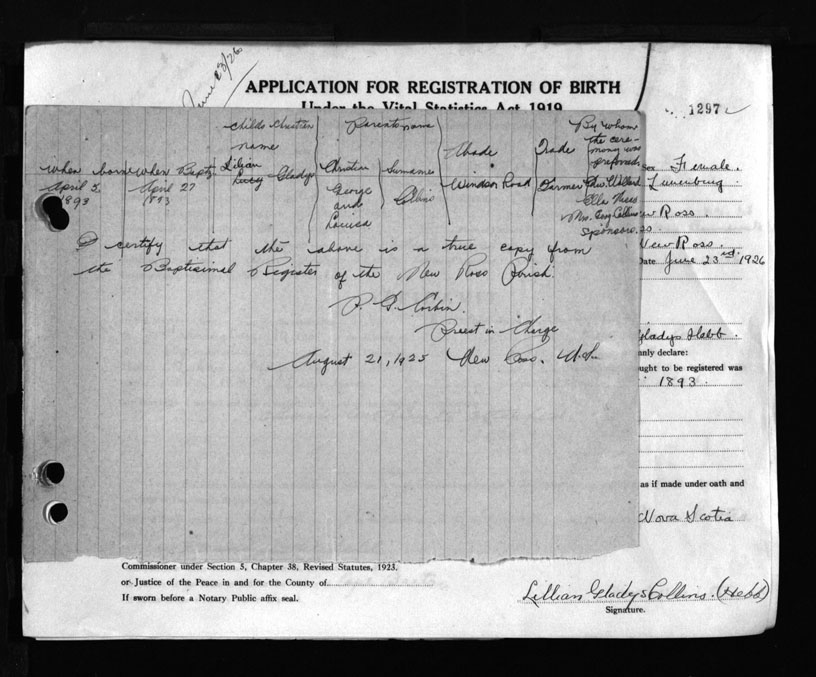 June 23/26
APPLICATION FOR REGISTRATION OF BIRTH
Under the Vital Statistics Act, 1919
1297
Childs Christian name
Parents name
By whom the cere-mony was preformed
When born
When Bapt.
Lilian
Lucy Gladys
Christian
Surname
Abode
Trade
April 2, 1893
April 27 1893
George and Louisa
Collins
Windsor Road
Farmer
Ella
Mrs. Geo Collins
Sponsors.
I certify that the above is a true copy from
the Baptisimal Register of the New Ross Parish.
Preest in Charge
August 21, 1925 New Ross. N.S.
Sex Female.
Lunenburg
New Ross.
ss.
New Ross.
Date June 23rd. 1926
Gladys Hebb.
nly declare:
ught to be registered was
1893.
as if made under oath and
Nova Scotia
Commissioner under Section 5, Chapter 38, Revised Statutes, 1923.
or Justice of the Peace in and for the County of
If sworn before a Notary Public affix seal.
Lillian Gladys Collins. (Hebb)
Signature.